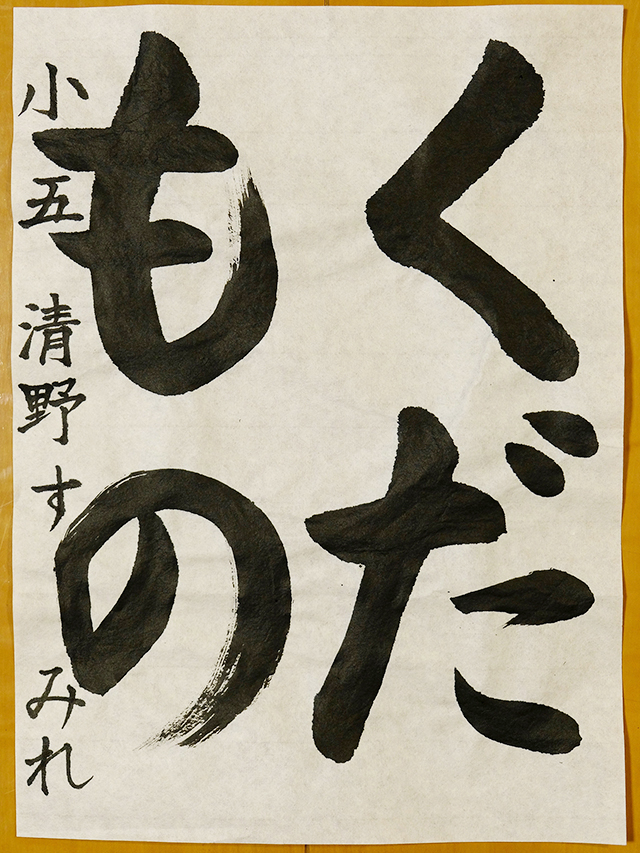 くだ
もの
小五 清野すみれ